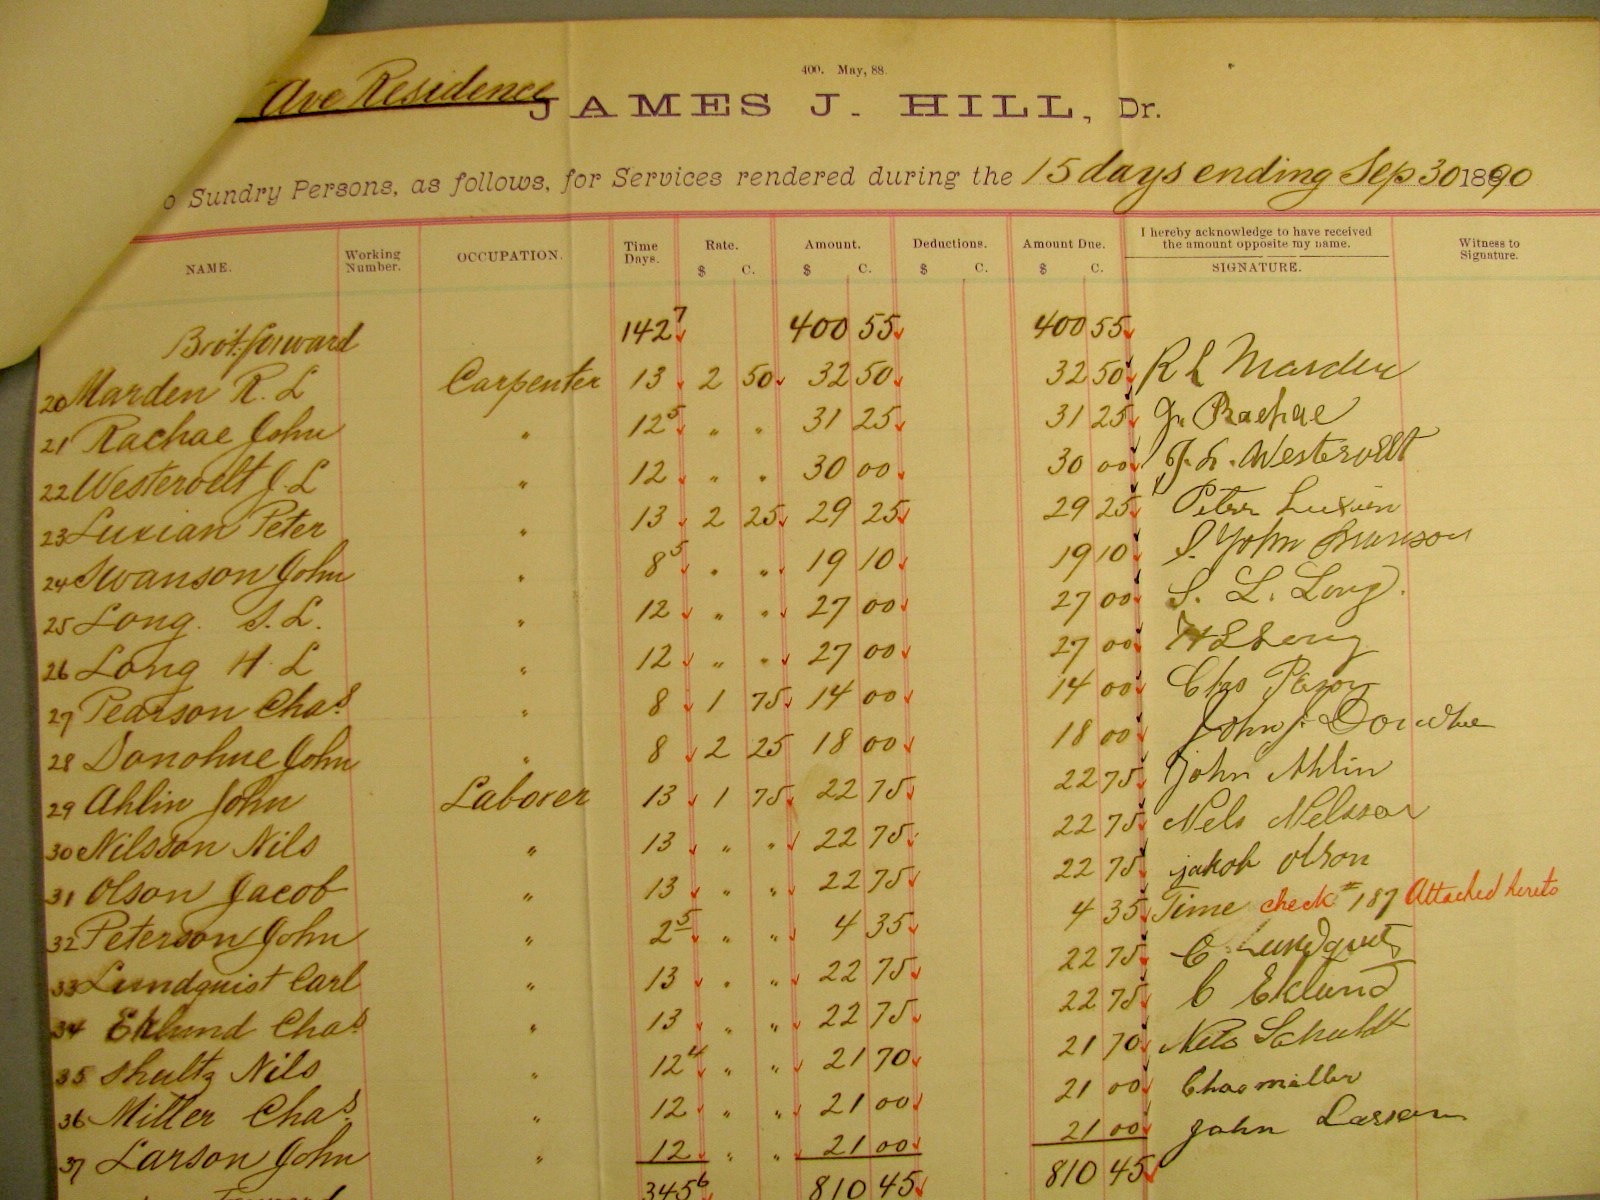 Ave Residence
400. May, 88.
JAMES J. HILL, Dr.
o Sundry Persons, as follows, for Services rendered during the 15 days ending Sep 30 1890
NAME. Working Number. OCCUPATION. Time Days. Rate. $ C. Amount. $ C. Deductions. $ C. Amount Due. $ C. I hereby acknowledge to have received the amount opposite my name. SIGNATURE. Witness to Signature.
Brot. forward 142 7 400 55 400 55
20 Marden R. L Carpenter 13 2 50 32 50 32 50 R L Marden
21 Rachae John " 12 5 " " 31 25 31 25 Jn Rachae
22 Westervelt J. L " 12 " " 30 00 30 00 J. L. Westervelt
23 Luxian Peter " 13 2 25 29 25 29 25 Peter Luxien
24 Swanson John " 8 5 " " 19 10 19 10 S. John Swanson
25 Long. S. L. " 12 " " 27 00 27 00 S. L. Long.
26 Long H. L " 12 " " 27 00 27 00 H L Long
27 Pearson Chas " 8 1 75 14 00 14 00 Chas
28 Donohue John " 8 2 25 18 00 18 00 John J. Donohue
29 Ahlin John Laborer 13 1 75 22 75 22 75 John Ahlin
30 Nilsson Nils " 13 " " 22 75 22 75 Nels Nelsson
31 Olson Jacob " 13 " " 22 75 22 75 jakob olson
32 Peterson John " 2 5 " " 4 35 4 35 Time check # 187 Attached hereto
33 Lundquist Carl " 13 " " 22 75 22 75 C. Lundquist
34 Eklund Chas " 13 " " 22 75 22 75 C Eklund
35 Shultz Nils " 12 4 " " 21 70 21 70 Nils Schuldt
36 Miller Chas. " 12 " " 21 00 21 00 Chas miller
37 Larson John " 12 " " 21 00 21 00 John Larson
345 6 810 45 810 45